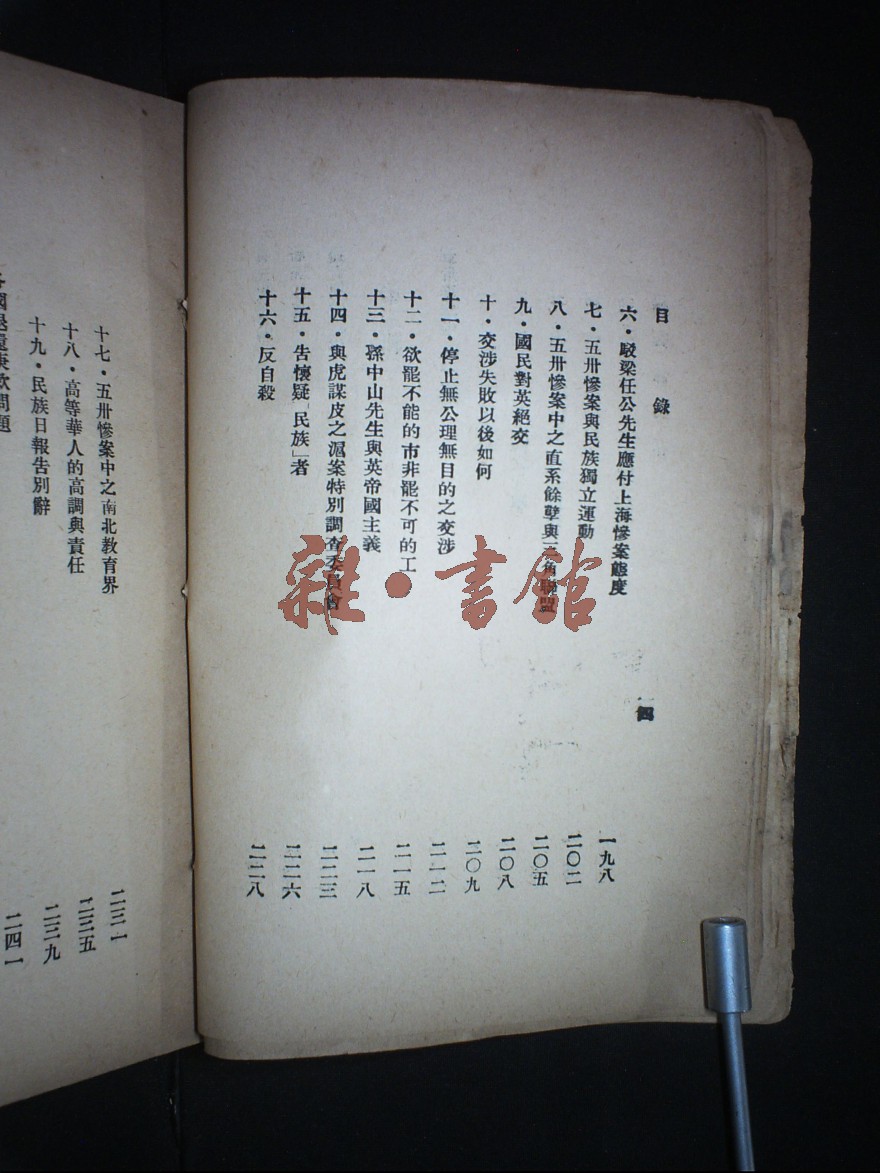 目 錄
四
六・駁梁任公先生應付上海慘案態度 一九八
七・五卅慘案與民族獨立運動 二〇二
八・五卅慘案中之直系餘孽與三角聯盟 二〇五
九・國民對英絕交 二〇八
十・交涉失敗以後如何 二〇九
十一・停止無公理無目的之交涉 二一二
十二・欲罷不能的市非罷不可的工 二一五
十三・孫中山先生與英帝國主義 二一八
十四・與虎謀皮之滬案特別調查委員會 二二三
十五・告懷疑「民族」者 二二六
十六・反自殺 二二八
十七・五卅慘案中之南北教育界 二三一
十八・高等華人的高調與責任 二三五
十九・民族日報告別辭 二三九
各國退還庚款問題 二四一
雜・書館